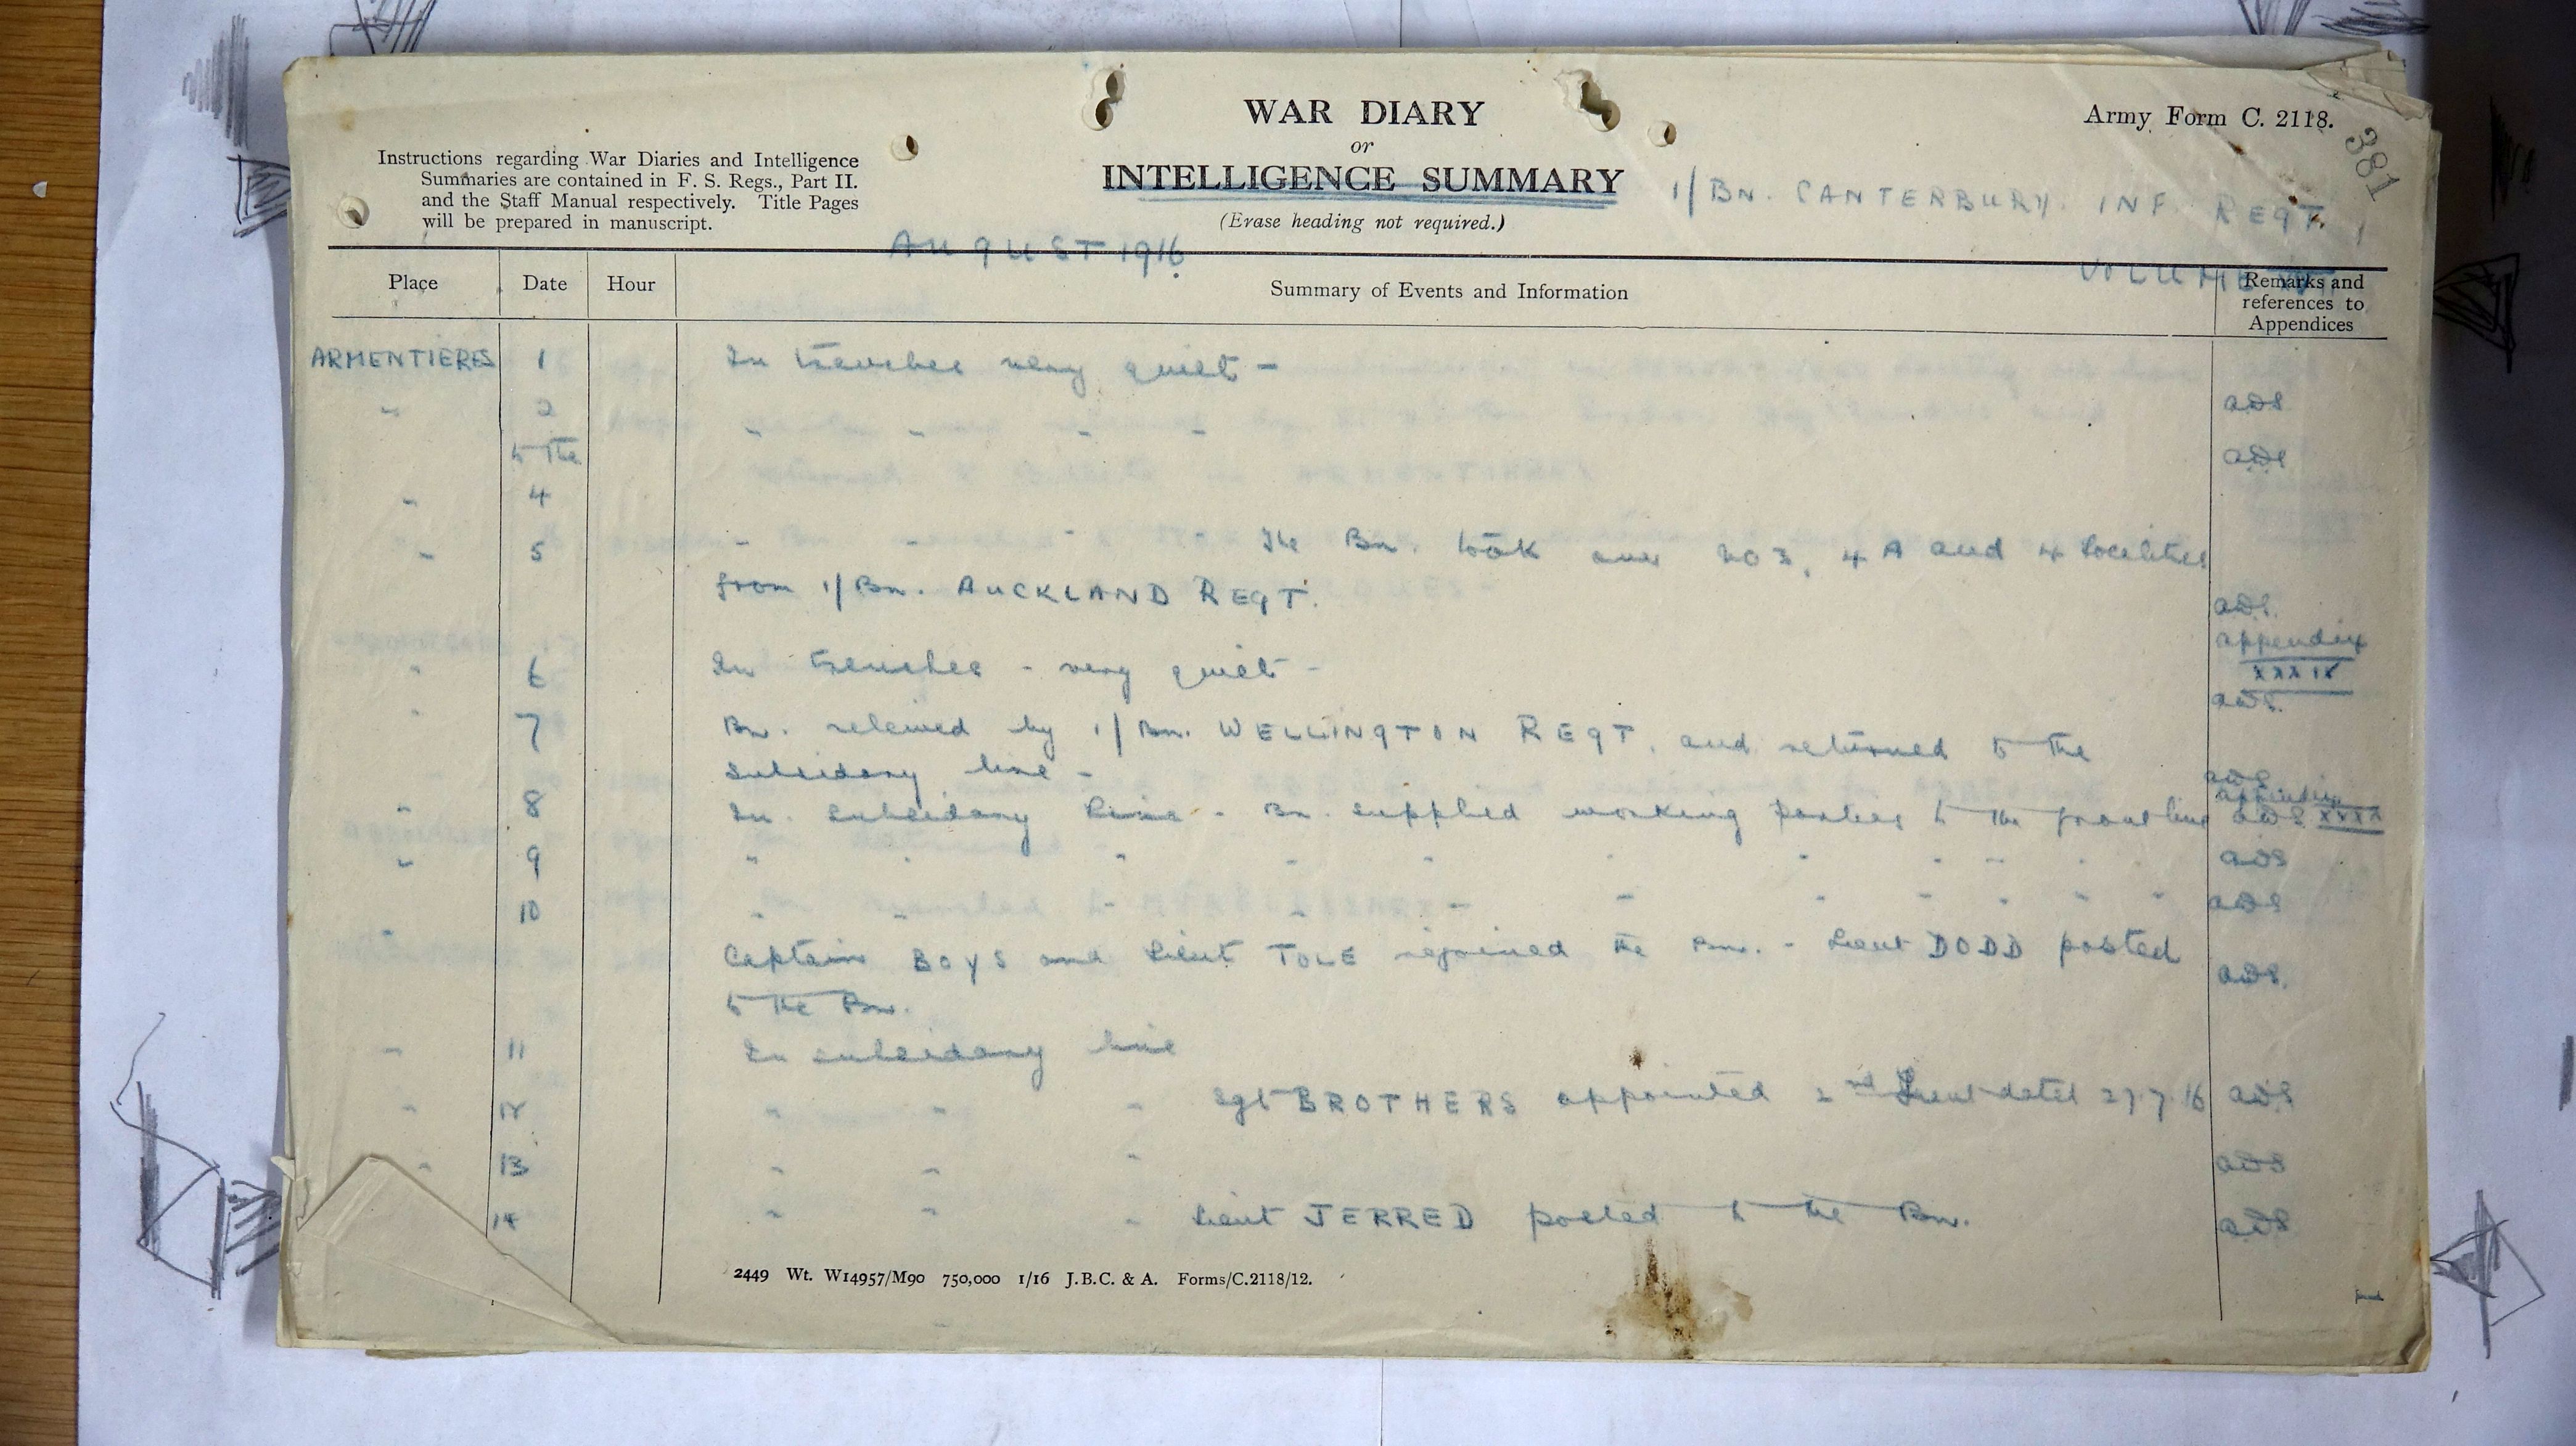 WAR DIARY
or
INTELLIGENCE SUMMARY
(Erase heading not required.)
Army Form C. 2118.
381
Instructions regarding War Diaries and Intelligence
Summaries are contained in F. S. Regs., Part II.
and the Staff Manual respectively. Title Pages
will be prepared in manuscript.
1/BN. CANTERBURY. INF. REGT.
AUGUST 1916
VOLUME
Place Date Hour Summary of Events and Information Remarks and
references to
Appendices
ARMENTIERES 1 In trenches very quiet -
" 2 " " " " ADS
to the ADS
" 4
" 5 " " " " The Bn. took over 4A and 4 localities
from 1/Bn. AUCKLAND REGT. ADS.
appendix
" 6 In trenches - very quiet - XXXIX
ADS.
" 7 Bn. relieved by 1/Bn. WELLINGTON REGT, and returned to the
subsidary line - ADS
appendix
" 8 In subsidary line - Bn. supplied working parties to the front line ADS XXXX
" 9 " " " " " " " " " " ADS
" 10 " " " " " " " " " " " ADS
Captain BOYS and Lieut TOLE rejoined the Bn. - Lieut DODD posted
to the Bn. ADS.
" 11 In subsidary line
" 12 " " " Sgt BROTHERS appointed 2nd Lieut dated 27.7.16 ADS
" 13 " " " ADS
14 " " " Lieut JERRED posted to the Bn. ADS
2449 Wt. W14957/M90 750,000 1/16 J.B.C. & A. Forms/C.2118/12.